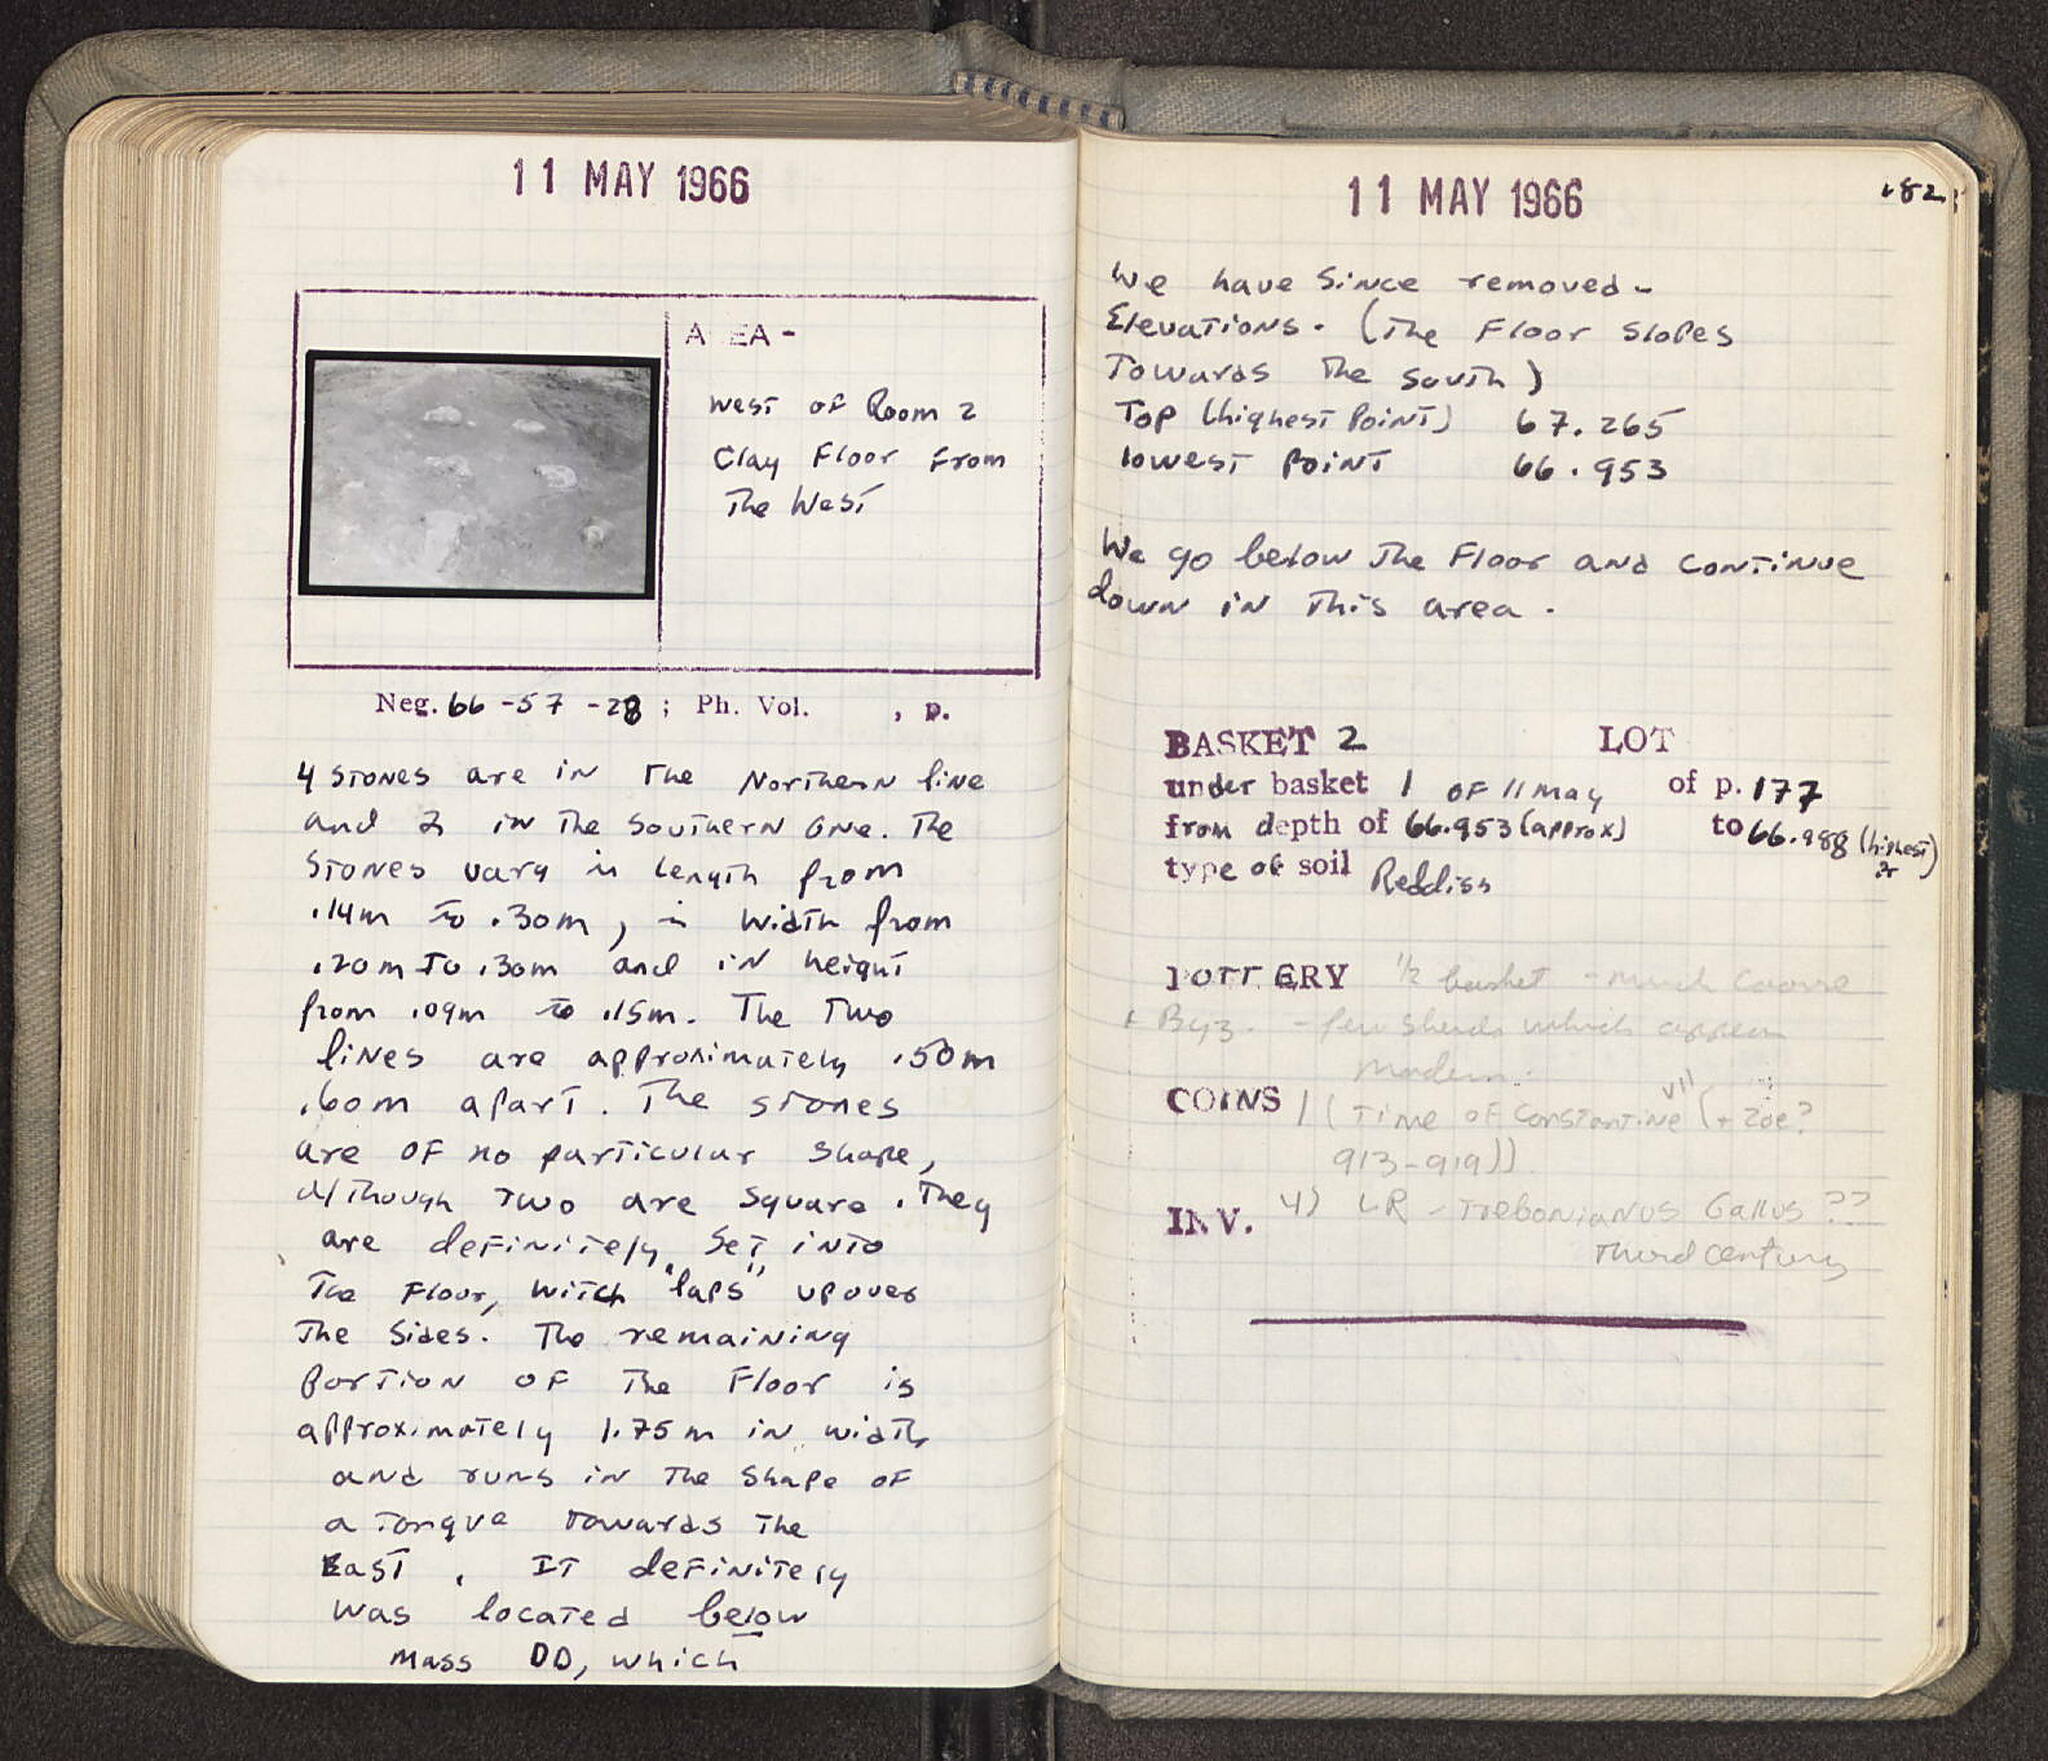 11 MAY 1966
A EA -
West of Room 2
Clay Floor from
The West
Neg. 66 -57 -28 ; Ph. Vol. , p.
4 stones are in The Northern line
and 2 in The Southern One. The
Stones vary in length from
.14m to .30m, in width from
.20m To .30m and in height
from .09m to .15m. The Two
lines are approximately .50m
.60m apart. The stones
are of no particular shape,
although Two are square. They
are definitely set into
The Floor, witch "laps" up over
The sides. The remaining
portion of The Floor is
approximately 1.75m in width
and runs in The shape of
a Tongue Towards The
East. It definitely
was located below
Mass DD, which
11 MAY 1966
182
We have since removed -
Elevations. (The Floor slopes
Towards The South)
Top (highest point) 67.265
lowest point 66.953
We go below The Floor and continue
down in This area.
BASKET 2 LOT
under basket 1 of 11 may of p. 177
from depth of 66.953 (approx) to 66.988 (highest)
type of soil Reddish
POTTERY 1/2 basket - much coarse
+ Byz. - few sherds which appear
modern.
COINS 1 (Time of Constantine VII (+ Zoe?
913-919))
INV. 4) LR - Trebonianus Gallus ??
Third century